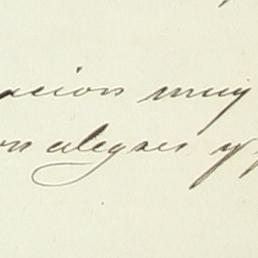 acion muy
on alegres y